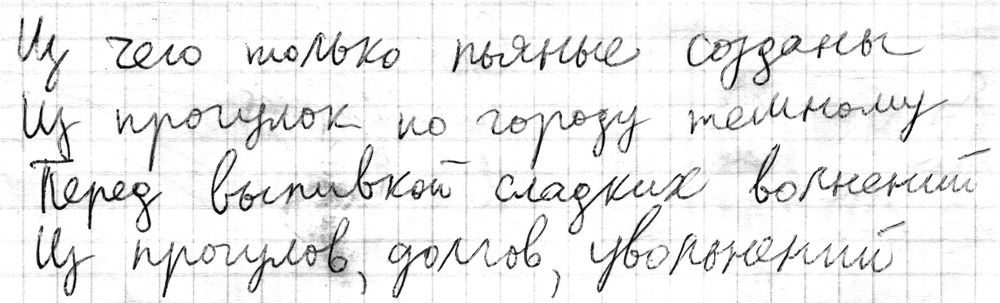 Из чего только пьяные созданы
Из прогулок по городу темному
Перед выпивкой сладких волнений
Из прогулов, долгов, увольнений